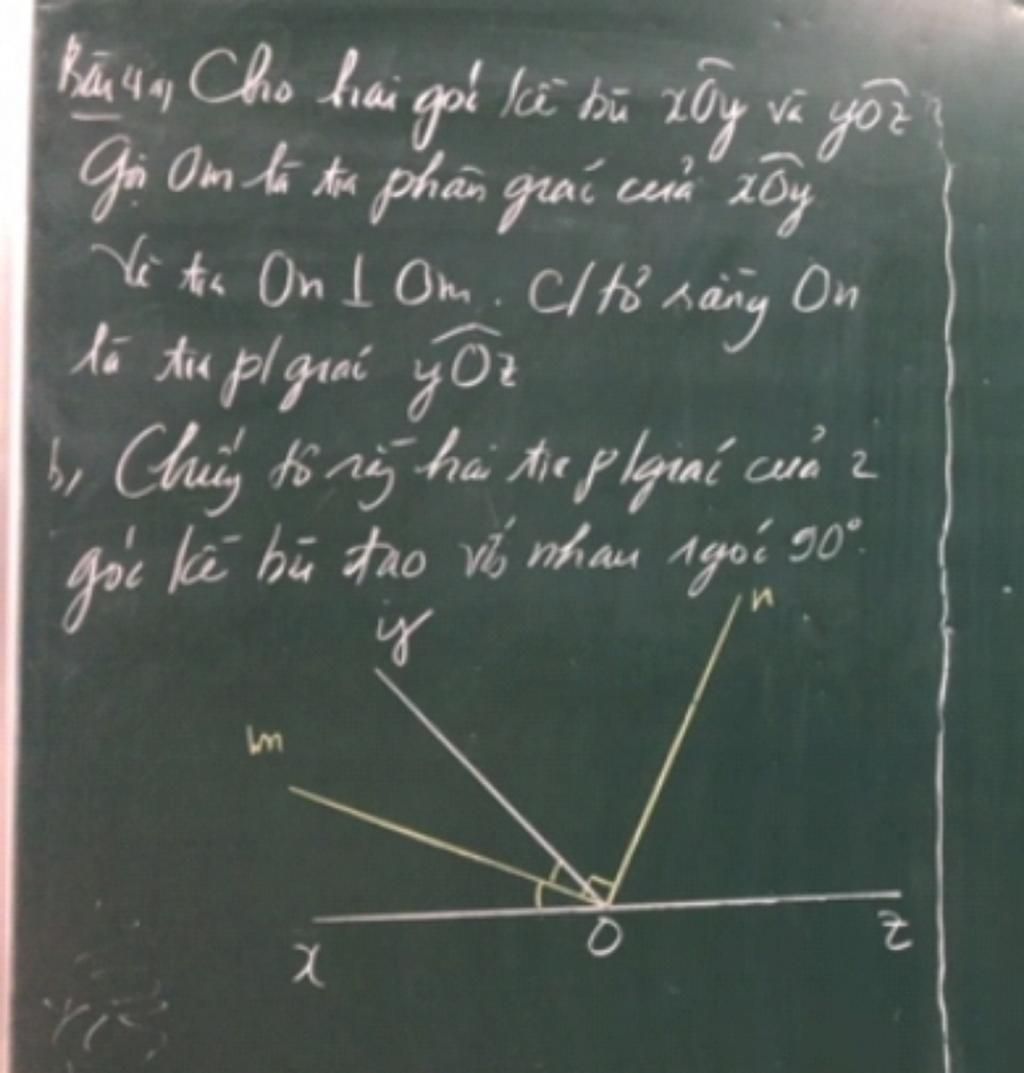 Bài 4 a, Cho hai góc kề bù xÔy và yÔz
Gọi Om là tia phân giác của xÔy
Vẽ tia On ⊥ Om. C/tỏ rằng On
là tia p/giác yÔz
b, Chứng tỏ rằng hai tia p/giác của 2
góc kề bù tạo với nhau 1 góc 90°.
y
n
m
x
O
z